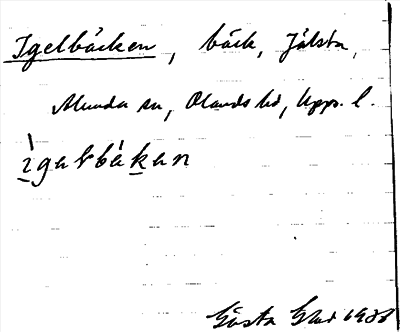 Igelbäcken, bäck, Jälsta,
Alunda sn, Olands hd, Upps. l.
ìgəlbàkən
Gösta